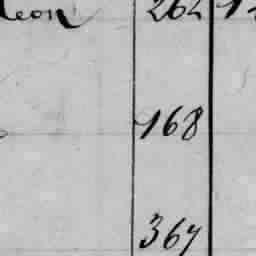 leon 262
168
367